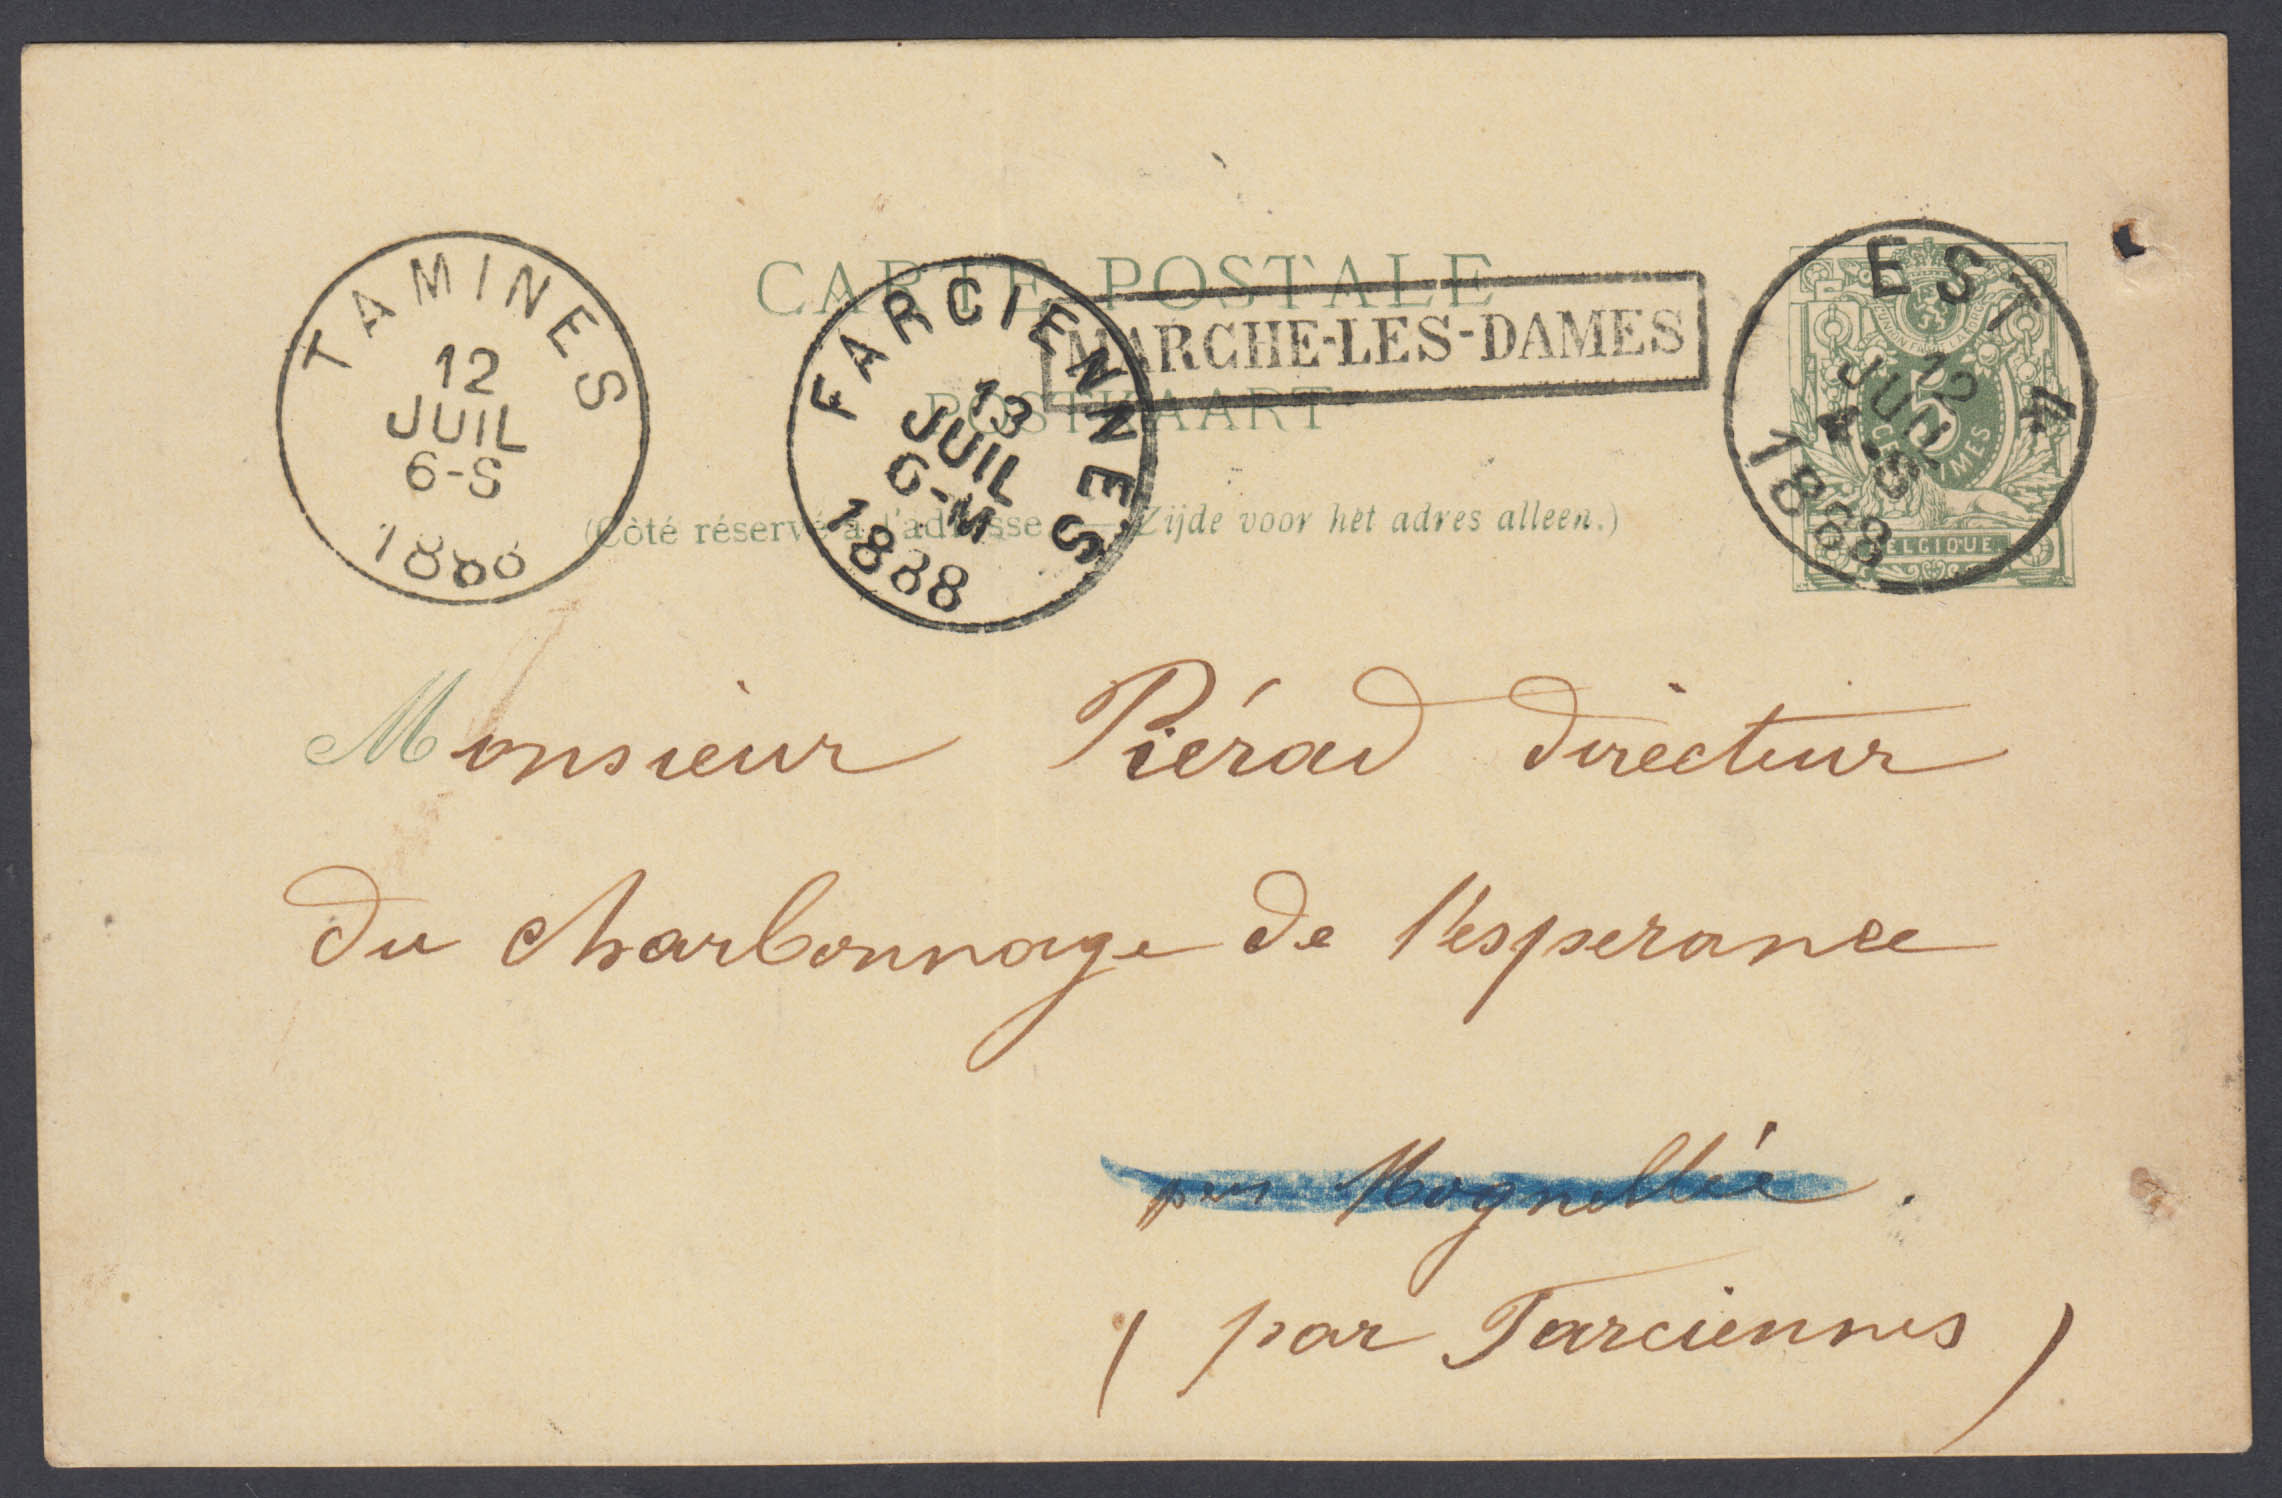 CARTE POSTALE
POSTKAART
(Côté réservé à l'adresse. — Zijde voor het adres alleen.)
TAMINES
12
JUIL
6-S
1888
FARCIENNES
13
JUIL
6-M
1888
MARCHE-LES-DAMES
EST 4
12
JUIL
4-S
1888
5
CENTIMES
BELGIQUE
Monsieur Piérad directeur
du charbonnage de l'esperance
par
( par Farciennes )